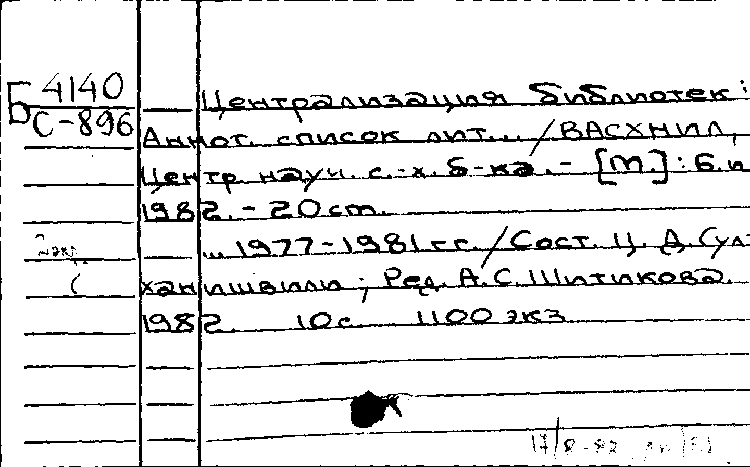 Б 4140
С-896
Централизация библиотек:
Аннот. список лит... / ВАСХНИЛ,
Центр. науч. с.-х. б-ка. - [М.]: Б.и
1982. - 20 cm.
... 1977-1981 гг. / Сост. Ц. Д. Сул-
2 экз
ханишвили; Ред. А. С. Шитикова
1982. 10 с. 1100 экз
17/8-82